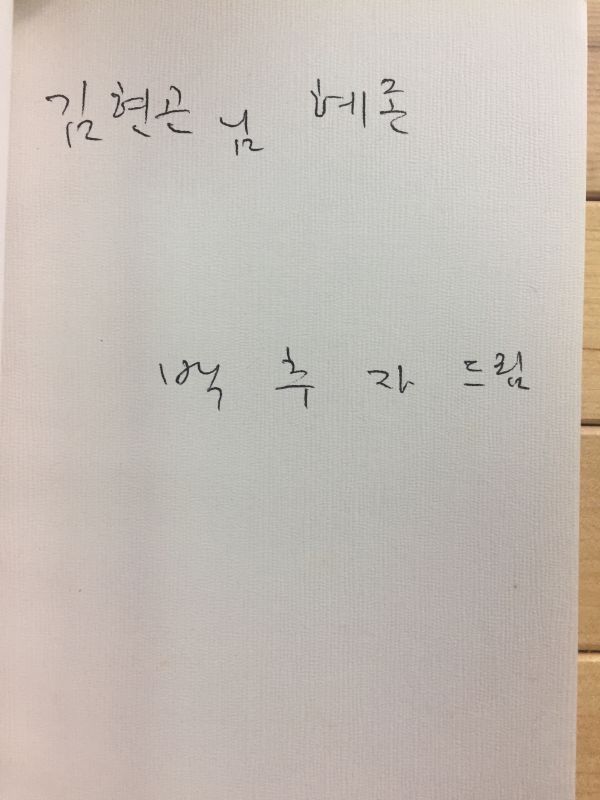 김현곤님 혜존
백추자 드림